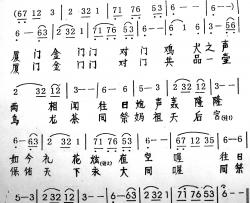 (67 12 3 | 2 32 1 | 71 76 53 | 6 — )
6 — 63 | 2 32 1 | 71 76 53 | 6 — |
厦门金 门门 对门 鸡 犬之声
厦门金 门门 对门 共 品一壶
2 32 12 | 3 — | 3 — | 6 — 63 |
两 相闻往日炮声轰 隆隆
乌 龙茶同祭妈祖天 后宫(注1)
5 — 6 | 2 32 1 | 71 76 53 | 6 — | 6 — 63 |
如今礼 花 绽在 空 喔 往日
保佑天 下 永大 同 喔 同祭
5 — 3 | 2 32 1 | 3 — | 3 — | 6 — 63 |